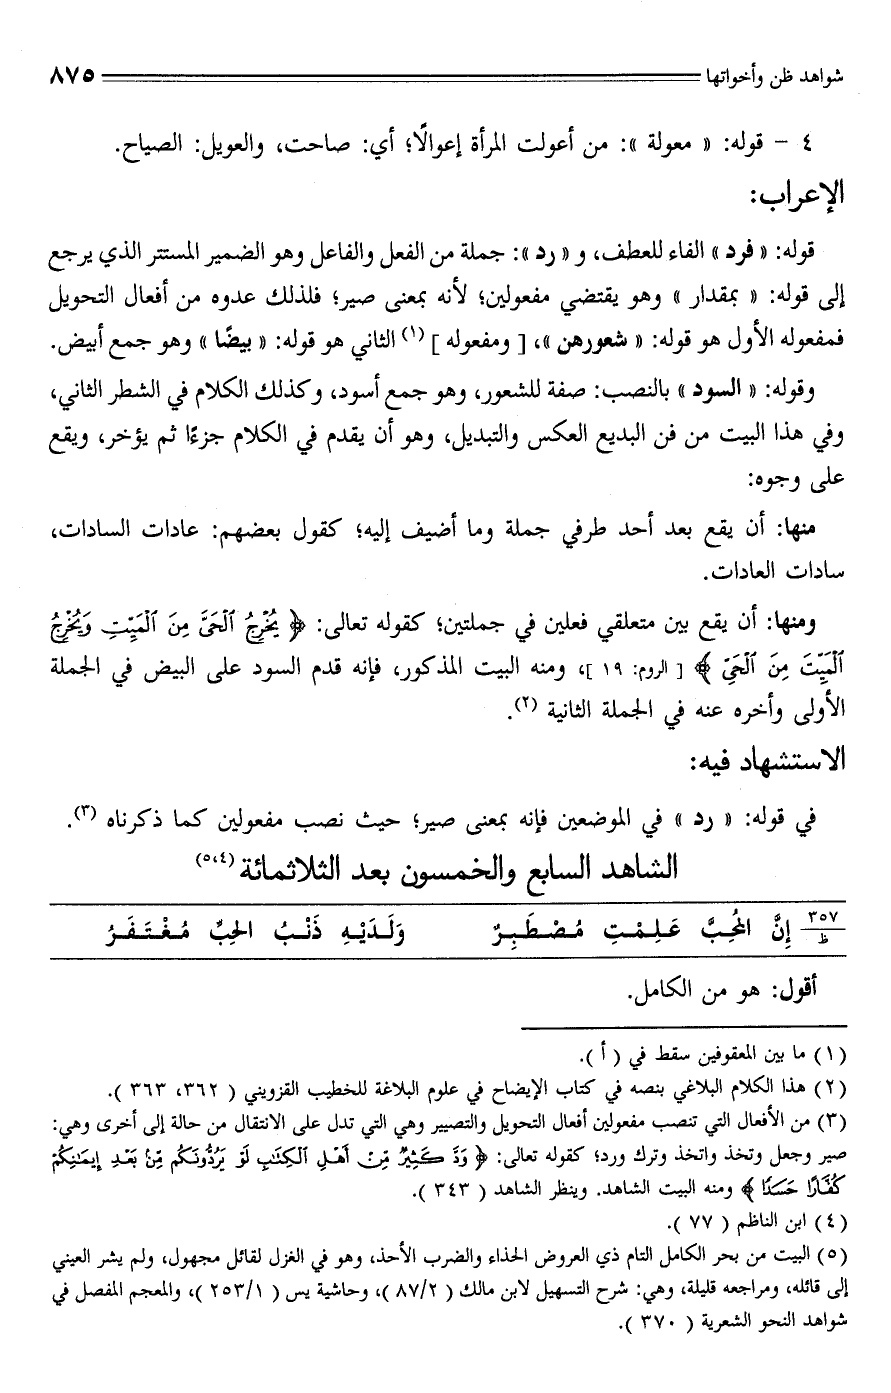 شواهد ظن وأخواتها ٨٧٥
٤ - قوله: « معولة »: من أعولت المرأة إعوالًا؛ أي: صاحت، والعويل: الصياح.
الإعراب:
قوله: « فرد » الفاء للعطف، و « رد »: جملة من الفعل والفاعل وهو الضمير المستتر الذي يرجع
إلى قوله: « بمقدار » وهو يقتضي مفعولين؛ لأنه بمعنى صير؛ فلذلك عدوه من أفعال التحويل
فمفعوله الأول هو قوله: « شعورهن »، [ ومفعوله ] (١) الثاني هو قوله: « بيضًا » وهو جمع أبيض.
وقوله: « السود » بالنصب: صفة للشعور، وهو جمع أسود، وكذلك الكلام في الشطر الثاني،
وفي هذا البيت من فن البديع العكس والتبديل، وهو أن يقدم في الكلام جزءًا ثم يؤخر، ويقع
على وجوه:
منها: أن يقع بعد أحد طرفي جملة وما أضيف إليه؛ كقول بعضهم: عادات السادات،
سادات العادات.
ومنها: أن يقع بين متعلقي فعلين في جملتين؛ كقوله تعالى: ﴿ يُخْرِجُ ٱلْحَىَّ مِنَ ٱلْمَيِّتِ وَيُخْرِجُ
ٱلْمَيِّتَ مِنَ ٱلْحَىِّ ﴾ [ الروم: ١٩ ]، ومنه البيت المذكور، فإنه قدم السود على البيض في الجملة
الأولى وأخره عنه في الجملة الثانية (٢).
الاستشهاد فيه:
في قوله: « رد » في الموضعين فإنه بمعنى صير؛ حيث نصب مفعولين كما ذكرناه (٣).
الشاهد السابع والخمسون بعد الثلاثمائة (٥،٤)
٣٥٧ ظ إِنَّ المُحِبَّ عَلِمْتِ مُصْطَبِرٌ وَلَدَيْهِ ذَنْبُ الحِبِّ مُغْتَفَرُ
أقول: هو من الكامل.
(١) ما بين المعقوفين سقط في ( أ ).
(٢) هذا الكلام البلاغي بنصه في كتاب الإيضاح في علوم البلاغة للخطيب القزويني ( ٣٦٢، ٣٦٣ ).
(٣) من الأفعال التي تنصب مفعولين أفعال التحويل والتصيير وهي التي تدل على الانتقال من حالة إلى أخرى وهي:
صير وجعل وتخذ واتخذ وترك ورد؛ كقوله تعالى: ﴿ وَدَّ كَثِيرٌ مِّنْ أَهْلِ ٱلْكِتَٰبِ لَوْ يَرُدُّونَكُم مِّنۢ بَعْدِ إِيمَٰنِكُمْ
كُفَّارًا حَسَدًا ﴾ ومنه البيت الشاهد. وينظر الشاهد ( ٣٤٣ ).
(٤) ابن الناظم ( ٧٧ ).
(٥) البيت من بحر الكامل التام ذي العروض الحذاء والضرب الأحذ، وهو في الغزل لقائل مجهول، ولم يشر العيني
إلى قائله، ومراجعه قليلة، وهي: شرح التسهيل لابن مالك ( ٨٧/٢ )، وحاشية يس ( ٢٥٣/١ )، والمعجم المفصل في
شواهد النحو الشعرية ( ٣٧٠ ).